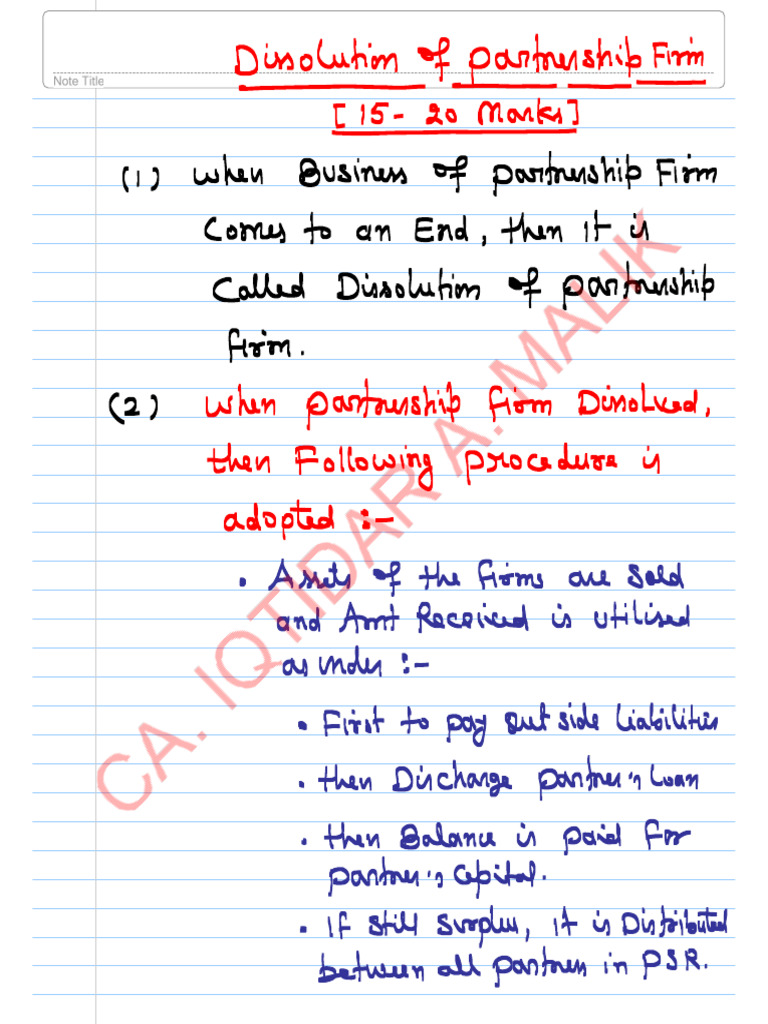 Dissolution of partnership Firm
Note Title
[15- 20 Marks]
(1) When Business of partnership Firm
Comes to an End, then it is
Called Dissolution of partnership
firm.
(2) When partnership firm Dissolved,
then Following procedure is
adopted :-
• Assets of the firms are sold
and Amt Received is utilised
as under :-
• First to pay out side liabilities
• then Discharge partner's Loan
• then Balance is paid for
partner's Capital.
• If still surplus, it is Distributed
between all partners in PSR.
CA. IQTIDAR A. MALIK